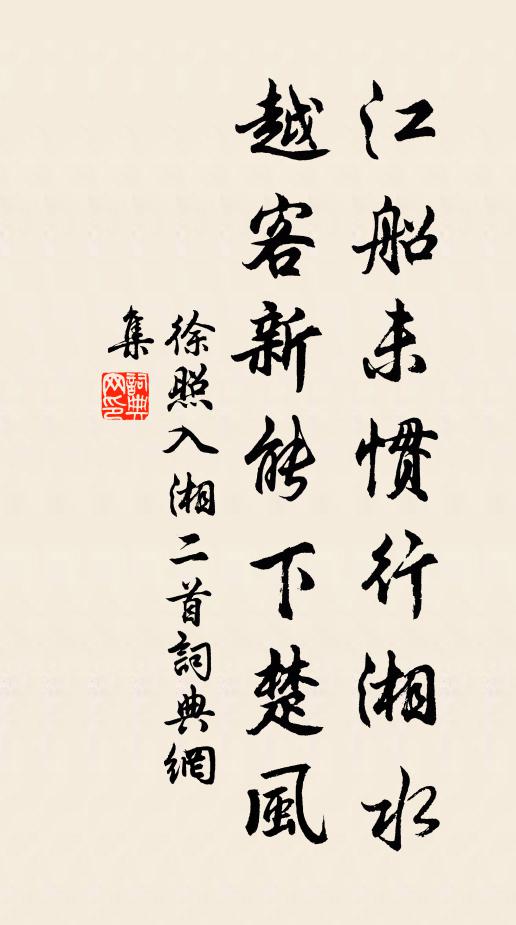 江船未慣行湘水
越客新能下楚風
徐照入湘二首詞典網
集
詞典
网印